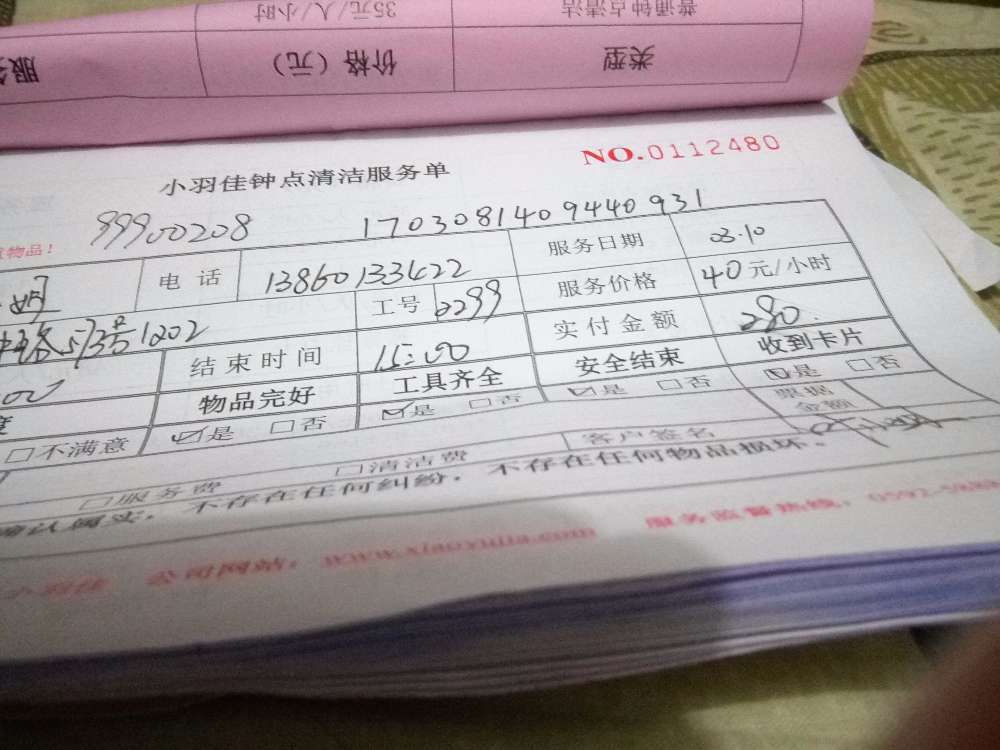 普通钟点清洁 35元/人/小时
类型 价格（元） 服
NO.0112480
小羽佳钟点清洁服务单
99900208 1703081409440931
物品！
电话 13860133422 服务日期 03.10
工号 2299 服务价格 40元/小时
1202 结束时间 15:00 实付金额 280.
物品完好 工具齐全 安全结束 收到卡片
□不满意 ☑是 □否 ☑是 □否 ☑是 □否 ☑是 □否
票据金额
□服务费 □清洁费 客户签名
确认属实，不存在任何纠纷，不存在任何物品损坏。
小羽佳 公司网站：www.xiaoyujia.com 服务监督热线：0592-5